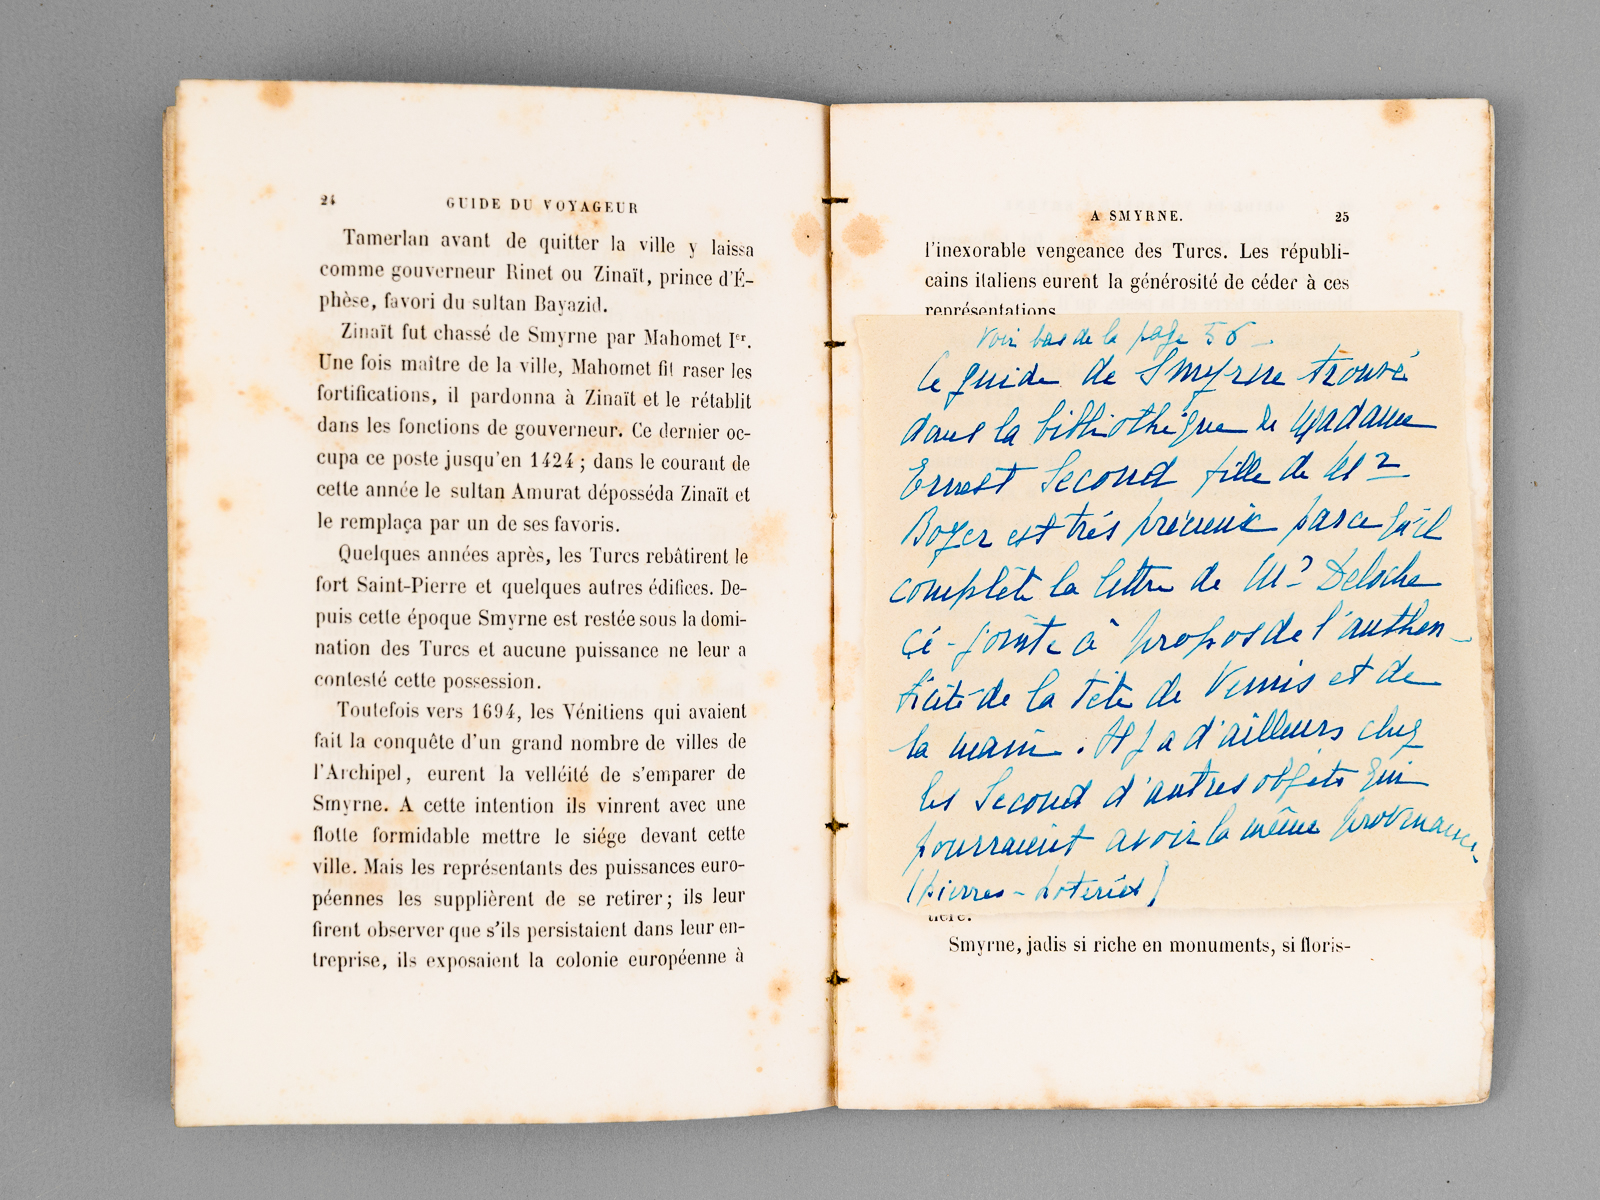 24
GUIDE DU VOYAGEUR
Tamerlan avant de quitter la ville y laissa
comme gouverneur Rinet ou Zinaït, prince d'É-
phèse, favori du sultan Bayazid.
Zinaït fut chassé de Smyrne par Mahomet Ier.
Une fois maître de la ville, Mahomet fit raser les
fortifications, il pardonna à Zinaït et le rétablit
dans les fonctions de gouverneur. Ce dernier oc-
cupa ce poste jusqu'en 1424 ; dans le courant de
cette année le sultan Amurat déposséda Zinaït et
le remplaça par un de ses favoris.
Quelques années après, les Turcs rebâtirent le
fort Saint-Pierre et quelques autres édifices. De-
puis cette époque Smyrne est restée sous la domi-
nation des Turcs et aucune puissance ne leur a
contesté cette possession.
Toutefois vers 1694, les Vénitiens qui avaient
fait la conquête d'un grand nombre de villes de
l'Archipel, eurent la velléité de s'emparer de
Smyrne. A cette intention ils vinrent avec une
flotte formidable mettre le siége devant cette
ville. Mais les représentants des puissances euro-
péennes les supplièrent de se retirer ; ils leur
firent observer que s'ils persistaient dans leur en-
treprise, ils exposaient la colonie européenne à
A SMYRNE.
25
l'inexorable vengeance des Turcs. Les républi-
cains italiens eurent la générosité de céder à ces
représentations
Voir bas de la page 56 -
Ce guide de Smyrne trouvé
dans la bibliothèque de Madame
Ernest Second fille de Mr
Boyer est très précieux parce qu'il
complète la lettre de Mr Deloche
ci-jointe à propos de l'authen-
ticité de la tête de Vénus et de
la main. Il y a d'ailleurs chez
les Second d'autres objets qui
pourraient avoir la même provenance
(pierres - poteries)
tière.
Smyrne, jadis si riche en monuments, si floris-